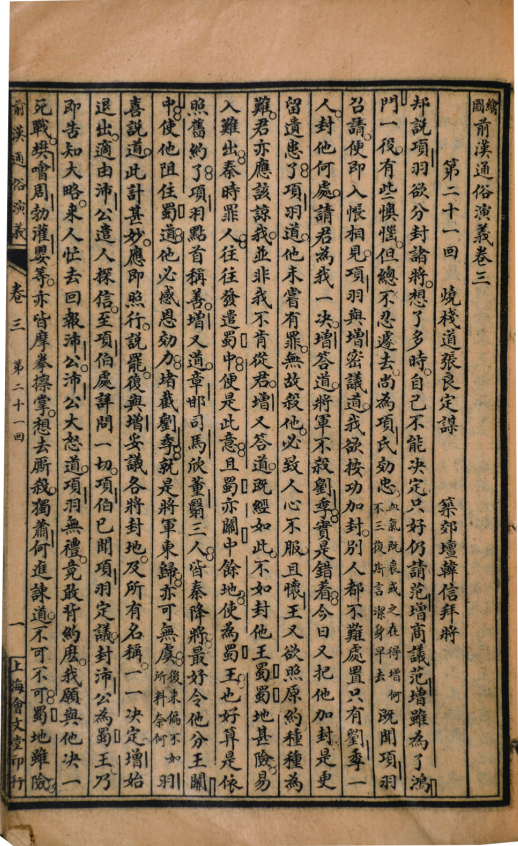 繪圖前漢通俗演義卷三
第二十一回　燒棧道張良定謀　築郊壇韓信拜將
却說項羽欲分封諸將想了多時自己不能決定只好仍請范增商議范增雖為了鴻
門一役有些懊惱但總不忍遽去尚為項氏効忠血氣既衰戒之在得增何不三復斯言潔身早去既聞項羽
召請便即入帳相見項羽與增密議道我欲按功加封別人都不難處置只有劉季一
人封他何處請君為我一決增答道將軍不殺劉季實是錯着今日又把他加封是更
留遺患了項羽道他未嘗有罪無故殺他必致人心不服且懷王又欲照原約種種為
難君亦應該諒我並非我不肯從君增又答道既經如此不如封他王蜀蜀地甚險易
入難出秦時罪人往往發遣蜀中便是此意且蜀亦關中餘地使為蜀王也好算是依
照舊約了項羽點首稱善增又道章邯司馬欣董翳三人皆秦降將最好令他分王關
中使他阻住蜀道他必感恩効力堵截劉季就是將軍東歸亦可無虞後來偏不如所料奈何羽
喜說道此計甚妙應即照行說罷復與增妥議各將封地及所有名稱一一決定增始
退出適由沛公遣人探信至項伯處詳問一切項伯已聞項羽定議封沛公為蜀王乃
即告知大略來人忙去回報沛公沛公大怒道項羽無禮竟敢背約麽我願與他決一
死戰樊噲周勃灌嬰等亦皆摩拳擦掌想去厮殺獨蕭何進諫道不可不可蜀地雖險
前漢通俗演義　卷三　第二十一回　一　上海會文堂印行